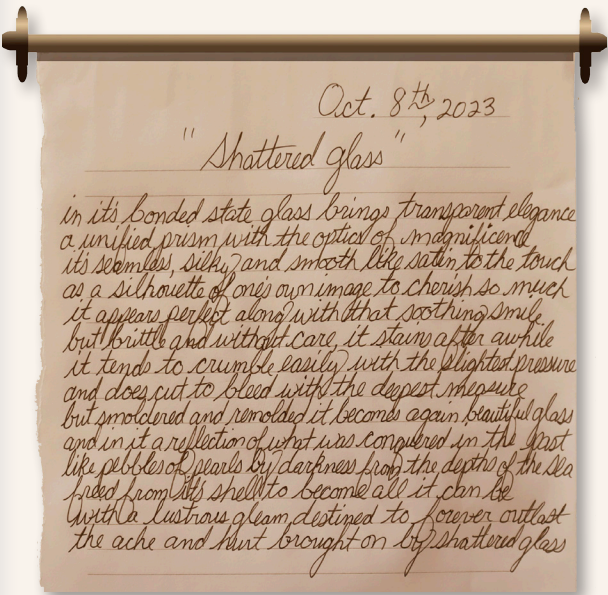 Oct. 8th, 2023
"Shattered glass"
in it's bonded state glass brings transparent elegance
a unified prism with the optics of magnificence
it's seamless, silky, and smooth like satin to the touch
as a silhouette of one's own image to cherish so much
it appears perfect along with that soothing smile
but brittle and without care, it stains after awhile
it tends to crumble easily with the slightest pressure
and does cut to bleed with the deepest measure
but smoldered and remolded it becomes again beautiful glass
and in it a reflection of what was conquered in the past
like pebbles of pearls by darkness from the depths of the sea
freed from it's shell to become all it can be
with a lustrous gleam, destined to forever outlast
the ache and hurt brought on by shattered glass